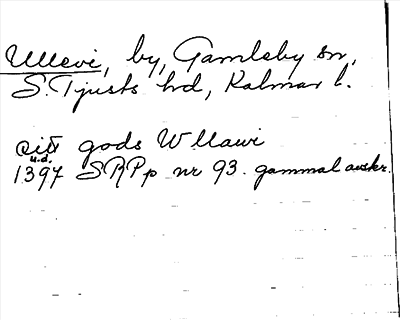 Ullevi, by, Gamleby sn,
S. Tjusts hd, Kalmar l.
ait gods Wllawi
u.d.
1397 SRPp nr 93. gammal avskr.